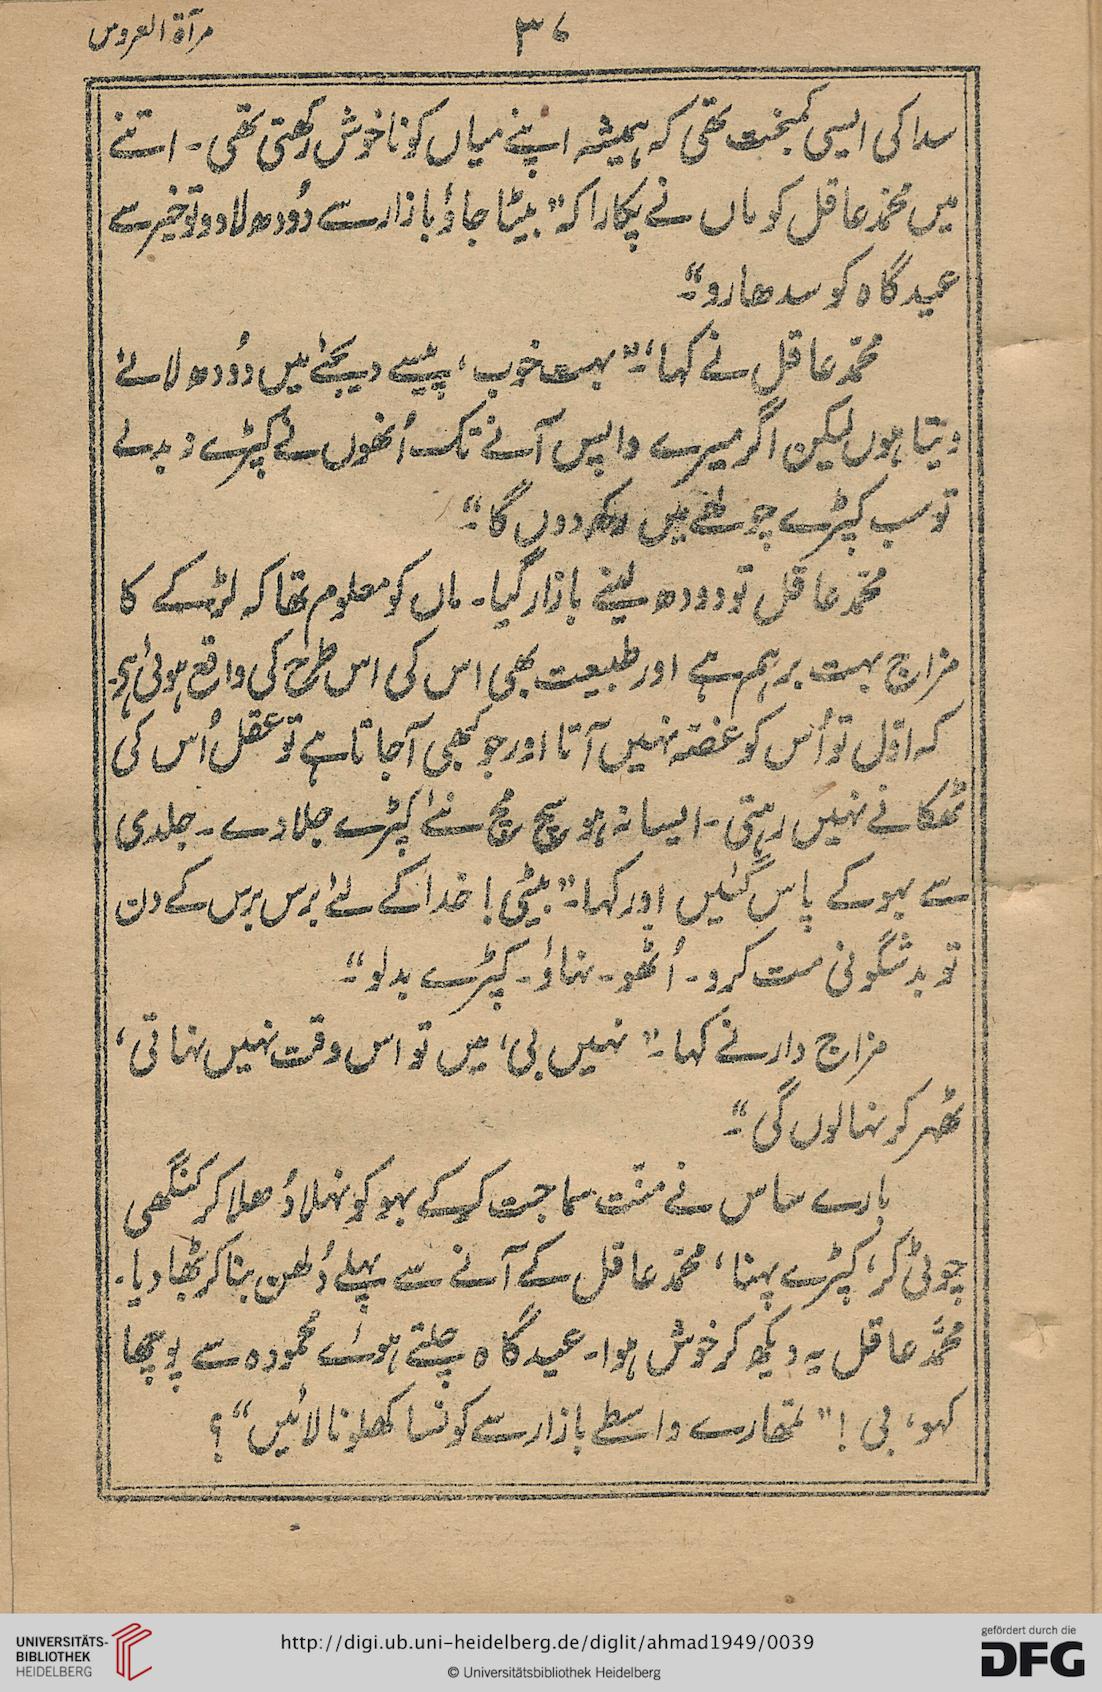 مرآۃ العروس
۳۷
سدا کی ایسی کمبخت تھی کہ ہمیشہ اپنے میاں کو ناخوش رکھتی تھی۔ اتنے
میں محمّد عاقل کو ماں نے پکارا کہ ”بیٹا جاؤ بازار سے دُودھ لادو تو خیر سے
عیدگاہ کو سدھارو“۔
محمّد عاقل نے کہا،۔” بہت خوب، پیسے دیجئے میں دُودھ لائے
دیتا ہوں لیکن اگر میرے واپس آنے تک اُنھوں نے کپڑے نہ بدلے
تو سب کپڑے چولھے میں رکھ دوں گا“۔
محمّد عاقل تو دودھ لینے بازار گیا۔ ماں کو معلوم تھا کہ لڑکے کا
مزاج بہت برہم ہے اور طبیعت بھی اس کی اس طرح کی واقع ہوئی ہی۔
کہ اوّل تو اُس کو غصّہ نہیں آتا اور جو کبھی آجاتا ہے تو عقل اُس کی
ٹھکانے نہیں رہتی۔ ایسا نہ ہو سچ مچ نئے کپڑے جلادے۔ جلدی
سے بہو کے پاس گئیں اور کہا۔” بیٹی! خدا کے لئے برس برس کے دن
تو بدشگونی مت کرو۔ اُٹھو۔ نہاؤ۔ کپڑے بدلو“۔
مزاج دار نے کہا۔” نہیں بی، میں تو اس وقت نہیں نہاتی،
ٹھہر کر نہالوں گی“۔
بارے ساس نے منّت سماجت کرکے بہو کو نہلا دُھلا کر کنگھی
چوٹی کر، کپڑے پہنا، محمّد عاقل کے آنے سے پہلے دُلھن بنا کر بٹھا دیا۔
محمّد عاقل یہ دیکھ کر خوش ہوا۔ عیدگاہ چلتے ہوئے محمودہ سے پوچھا
کہو، بی !” تمھارے واسطے بازار سے کونسا کھلونا لائیں“؟
UNIVERSITÄTS-
BIBLIOTHEK
HEIDELBERG
http://digi.ub.uni-heidelberg.de/diglit/ahmad1949/0039
© Universitätsbibliothek Heidelberg
gefördert durch die
DFG